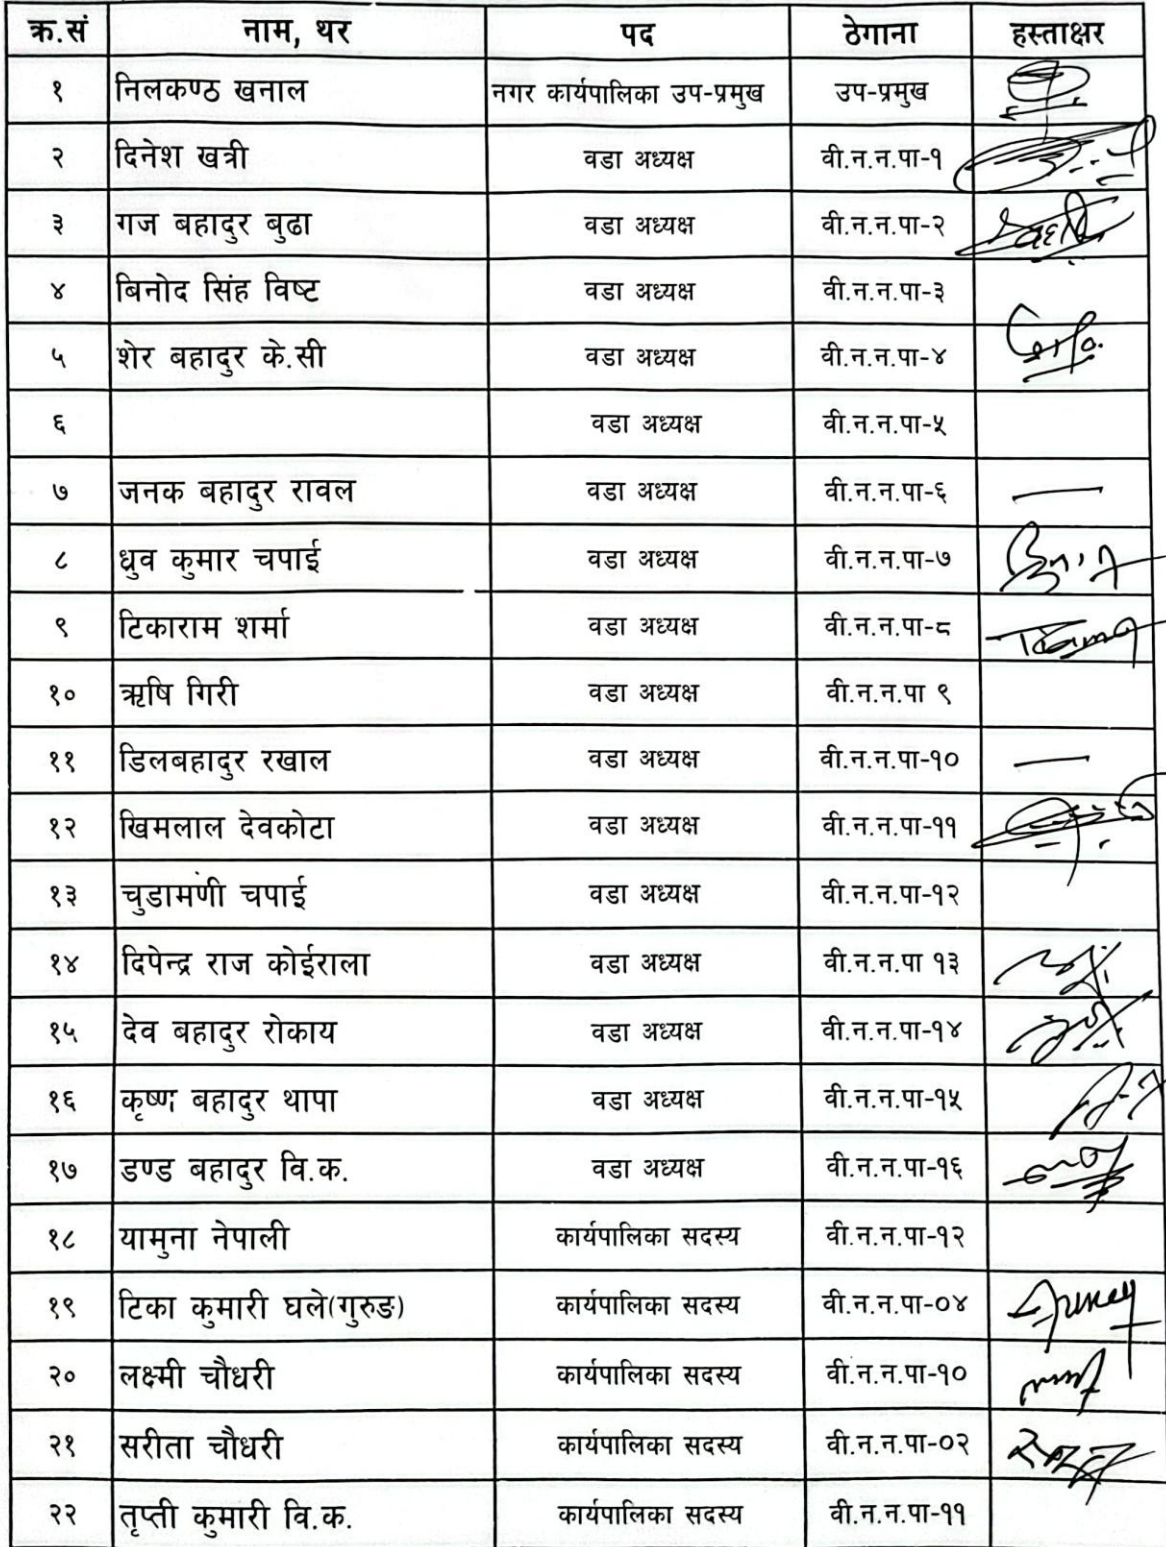 क्र.सं नाम, थर पद ठेगाना हस्ताक्षर
१ निलकण्ठ खनाल नगर कार्यपालिका उप-प्रमुख उप-प्रमुख
२ दिनेश खत्री वडा अध्यक्ष वी.न.न.पा-१
३ गज बहादुर बुढा वडा अध्यक्ष वी.न.न.पा-२
४ बिनोद सिंह विष्ट वडा अध्यक्ष वी.न.न.पा-३
५ शेर बहादुर के.सी वडा अध्यक्ष वी.न.न.पा-४
६ वडा अध्यक्ष वी.न.न.पा-५
७ जनक बहादुर रावल वडा अध्यक्ष वी.न.न.पा-६ —
८ ध्रुव कुमार चपाई वडा अध्यक्ष वी.न.न.पा-७
९ टिकाराम शर्मा वडा अध्यक्ष वी.न.न.पा-८
१० ऋषि गिरी वडा अध्यक्ष वी.न.न.पा ९
११ डिलबहादुर रखाल वडा अध्यक्ष वी.न.न.पा-१० —
१२ खिमलाल देवकोटा वडा अध्यक्ष वी.न.न.पा-११
१३ चुडामणी चपाई वडा अध्यक्ष वी.न.न.पा-१२
१४ दिपेन्द्र राज कोईराला वडा अध्यक्ष वी.न.न.पा १३
१५ देव बहादुर रोकाय वडा अध्यक्ष वी.न.न.पा-१४
१६ कृष्ण बहादुर थापा वडा अध्यक्ष वी.न.न.पा-१५
१७ डण्ड बहादुर वि.क. वडा अध्यक्ष वी.न.न.पा-१६
१८ यामुना नेपाली कार्यपालिका सदस्य वी.न.न.पा-१२
१९ टिका कुमारी घले(गुरुङ) कार्यपालिका सदस्य वी.न.न.पा-०४
२० लक्ष्मी चौधरी कार्यपालिका सदस्य वी.न.न.पा-१०
२१ सरीता चौधरी कार्यपालिका सदस्य वी.न.न.पा-०२
२२ तृप्ती कुमारी वि.क. कार्यपालिका सदस्य वी.न.न.पा-११